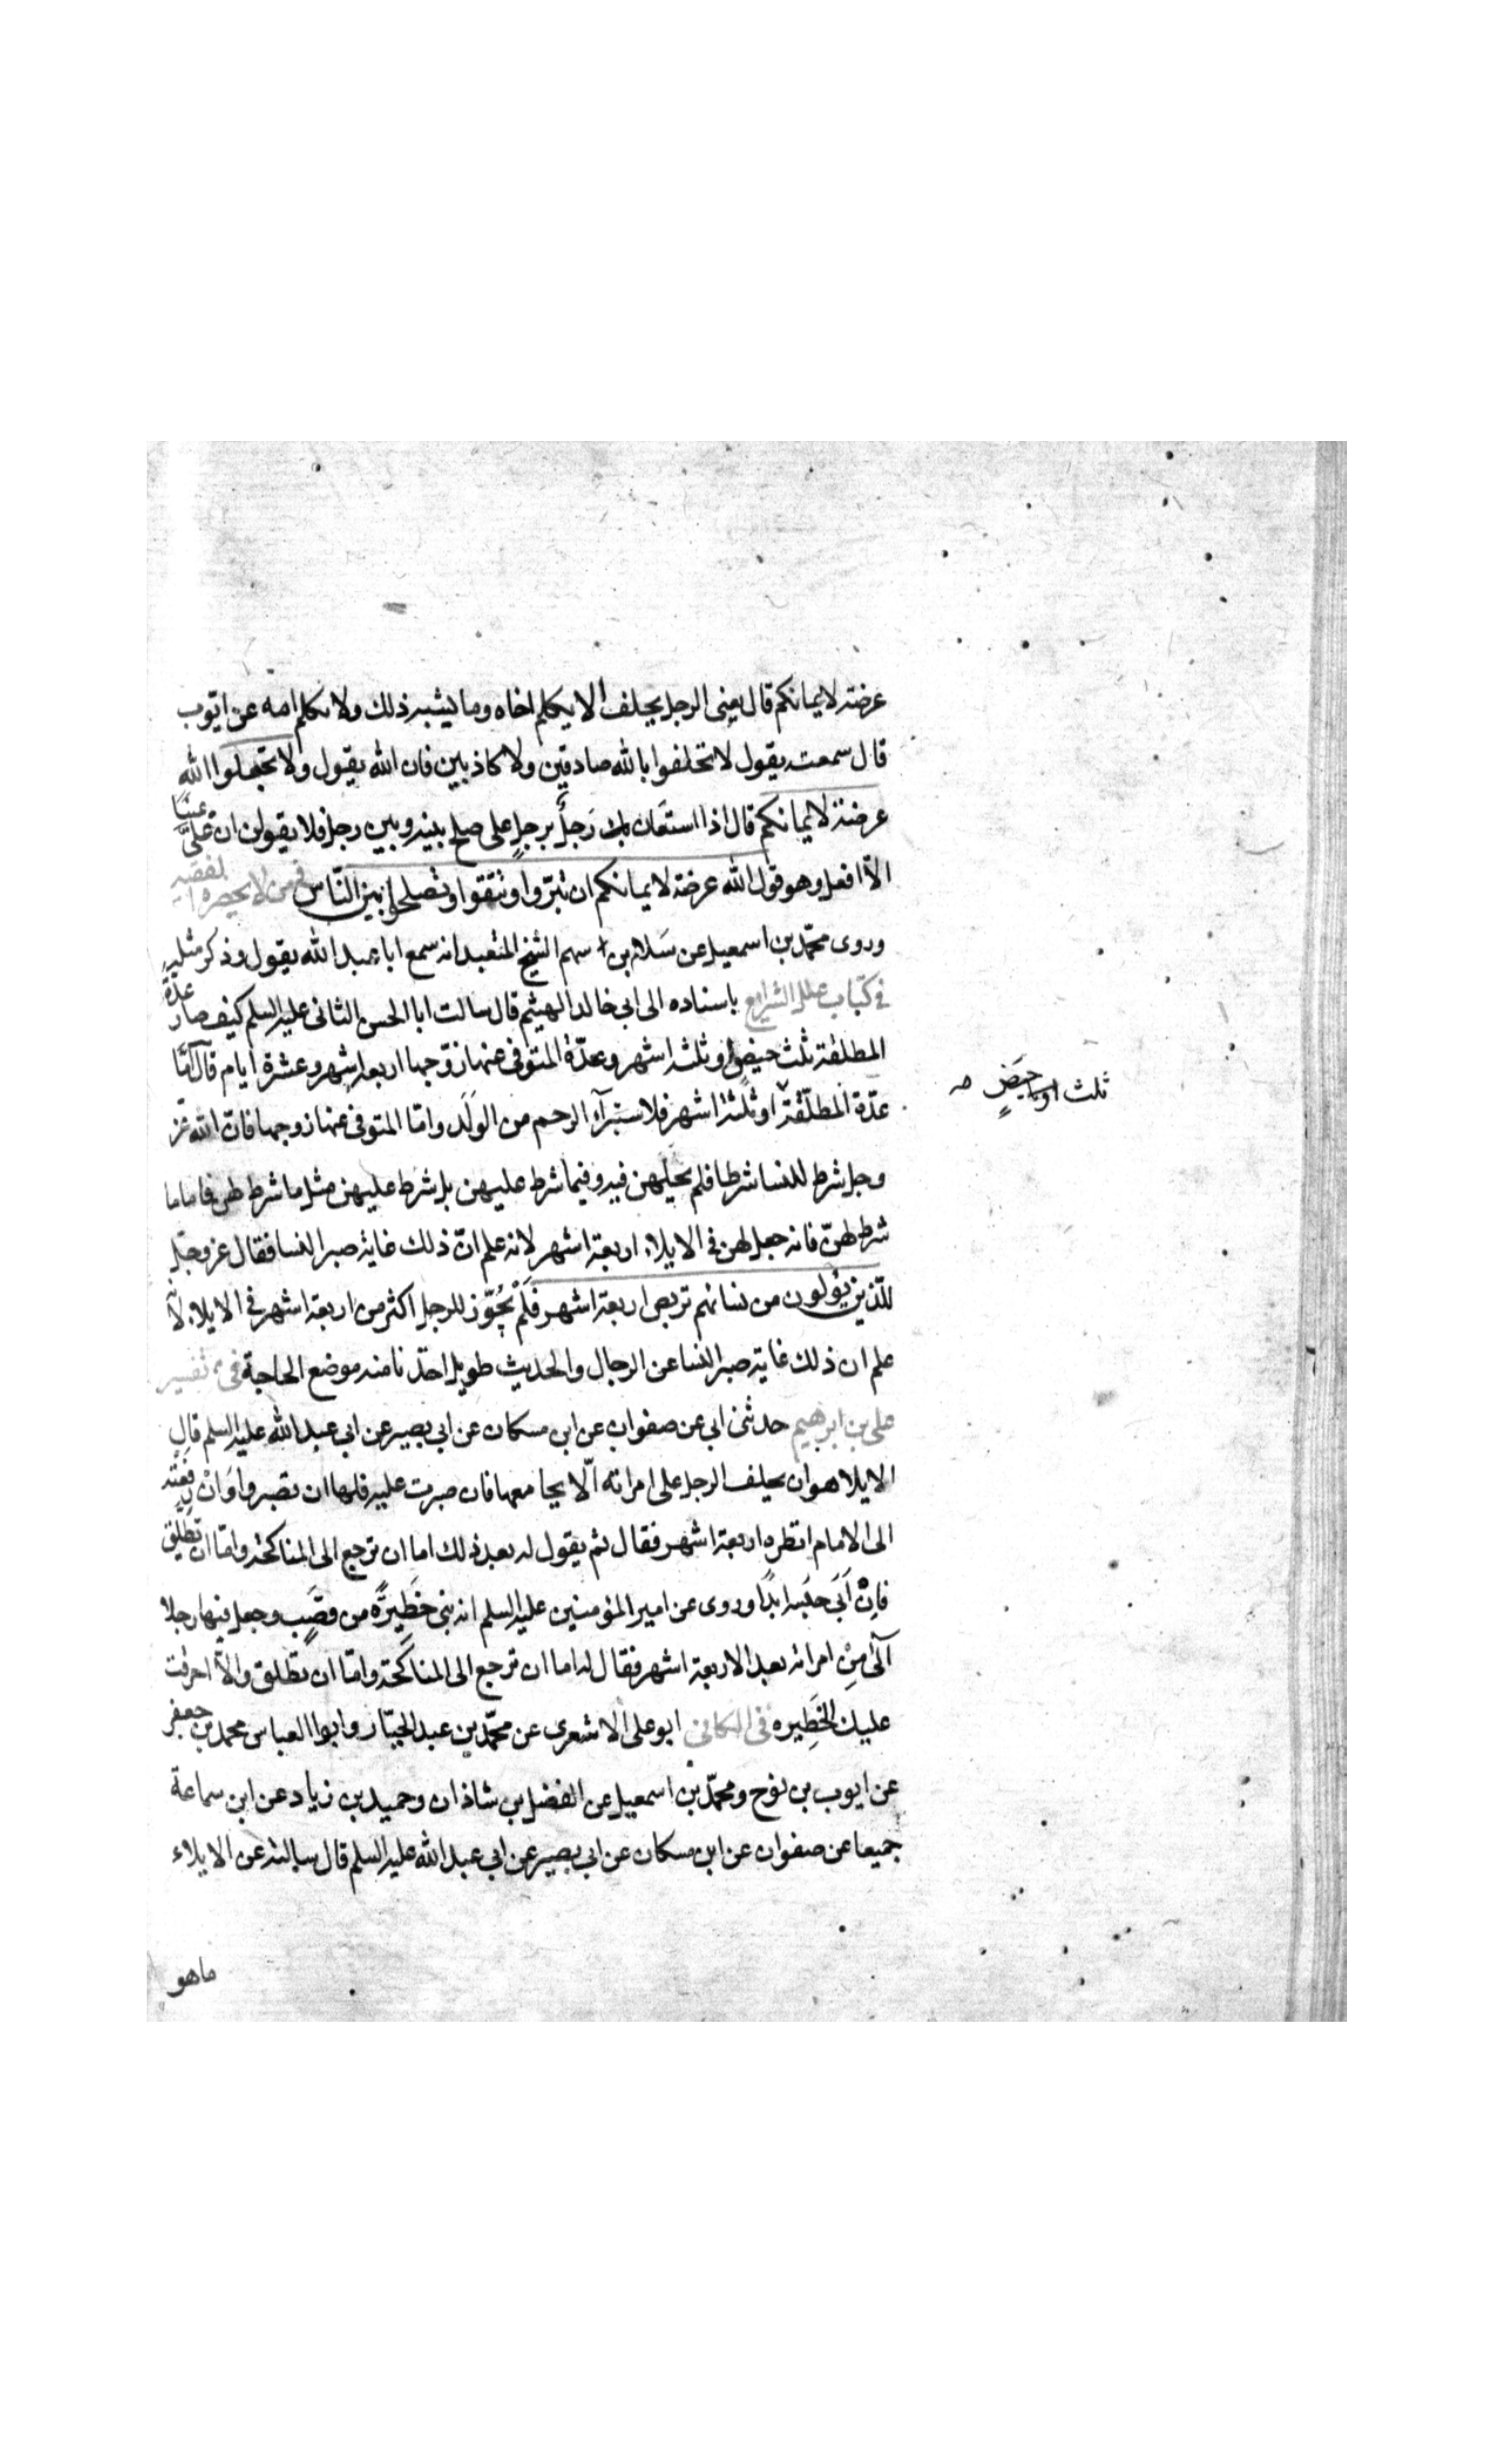 عرضة لايمانكم قال يعنى الرجل يحلف الا يكلم اخاه وما يشبه ذلك ولا يكلم امه عن ايوب
قال سمعته يقول لا تحلفوا بالله صادقين ولا كاذبين فان الله يقول ولا تجعلوا الله
عرضة لايمانكم قال اذا استعان رَجلٌ برجلٍ على صلح بينه وبين رجل فلا يقولن ان عَلَىَّ يمينا
الّا افعل وهو قول الله عرضة لايمانكم ان تبرّوا وتتقوا وتصلحوا بين النّاس فى من لا يحضره الفقيه
وروى محمّد بن اسمعيل عن سَلام بن سهم الشيخ المتعبد انه سمع ابا عبد الله يقول وذكر مثله
فى كتاب علل الشرايع باسناده الى ابى خالد الهيثم قال سالت ابا الحسن الثانى عليه السلم كيف صار عدّة
المطلقة ثلث حيض او ثلثة اشهر وعدّة المتوفى عنها زوجها اربعة اشهر وعشرة ايام قال امّا
عدّة المطلّقة او ثلثة اشهر فلاستبرآء الرحم من الوَلَد وامّا المتوفى عنها زوجها فانّ الله عز
وجل شرط للنسا شرطا فلم يحلهن فيه وفيما شرط عليهن بل شرط عليهن مثل ما شرط لهن فاما ما
شرط لهنّ فانه جعل لهن فى الايلاء اربعة اشهر لانه علم انّ ذلك غاية صبر النسا فقال عز وجلّ
للّذين يؤلون من نسائهم تربص اربعة اشهر فَلَمْ يُجَوّز للرجل اكثر من اربعة اشهر فى الايلاء لانّه
علم ان ذلك غاية صبر النسا عن الرجال والحديث طويل اخذنا منه موضع الحاجة فى تفسير
على بن ابرهيم حدثنى ابى عن صفوان عن ابن مسكان عن ابى بصير عن ابى عبد الله عليه السلم قال
الايلا هو ان يحلف الرجل على امراته الّا يجامعها فان صبرت عليه فلها ان تصبر وَانْ رفعته
الى الامام انظره اربعة اشهر فقال ثم يقول له بعد ذلك اما ان ترجع الى المناكحة وامّا ان تطلّق
فاِنْ اَبَى حبسه ابدًا وروى عن امير المؤمنين عليه السلم انه بنى حَظِيرَةً من قصَبٍ وجعل فيها رجلا
آلَىٰ مِنْ امراته بعد الاربعة اشهر فقال له اما ان ترجع الى المناكحة وامّا ان تطلق والّا احرقت
عليك الحَظِيره فى الكافى ابو على الاشعرى عن محمّد بن عبد الجبّار وابو العباس محمد بن جعفر
عن ايوب بن نوح ومحمّد بن اسمعيل عن الفضل بن شاذان وحميد بن زياد عن ابن سماعة
جميعا عن صفوان عن ابن مسكان عن ابى بصير عن ابى عبد الله عليه السلم قال سالته عن الايلاء
ماهو
ثلث حِيَضٍ